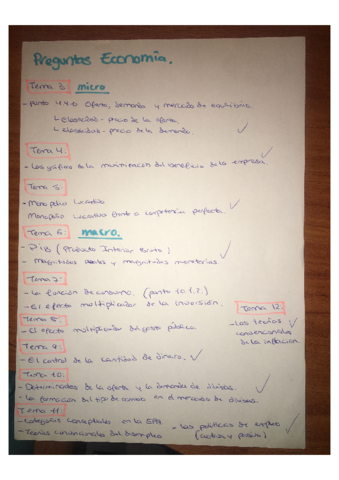 Preguntas Economía.
Tema 3: micro
- punto 4.4.6 Oferta, Demanda y mercado de equilibrio
↳ elasticidad - precio de la oferta.
↳ elasticidad - precio de la demanda. ✓
Tema 4:
- Los gráficos de la maximización del beneficio de la empresa. ✓
Tema 5:
- Monopolio lucrativo.
Monopolio lucrativo frente a competencia perfecta. ✓
Tema 6: macro.
- PIB (Producto Interior Bruto) ✓
- Magnitudes reales y magnitudes monetarias.
Tema 7:
- La función de consumo. (punto 10.1.2.)
- El efecto multiplicador de la inversión. ✓
Tema 8:
- El efecto multiplicador del gasto público.
Tema 9:
- El control de la cantidad de dinero. ✓
Tema 10:
- Determinantes de la oferta y la demanda de divisas.
- La formación del tipo de cambio en el mercado de divisas.
Tema 11
- Categorías conceptuales en la EPA.
- Teorías convencionales del desempleo
- Las políticas de empleo ✓
(activa y pasiva)
Tema 12
- Las teorías ✓
convencionales
de la inflación